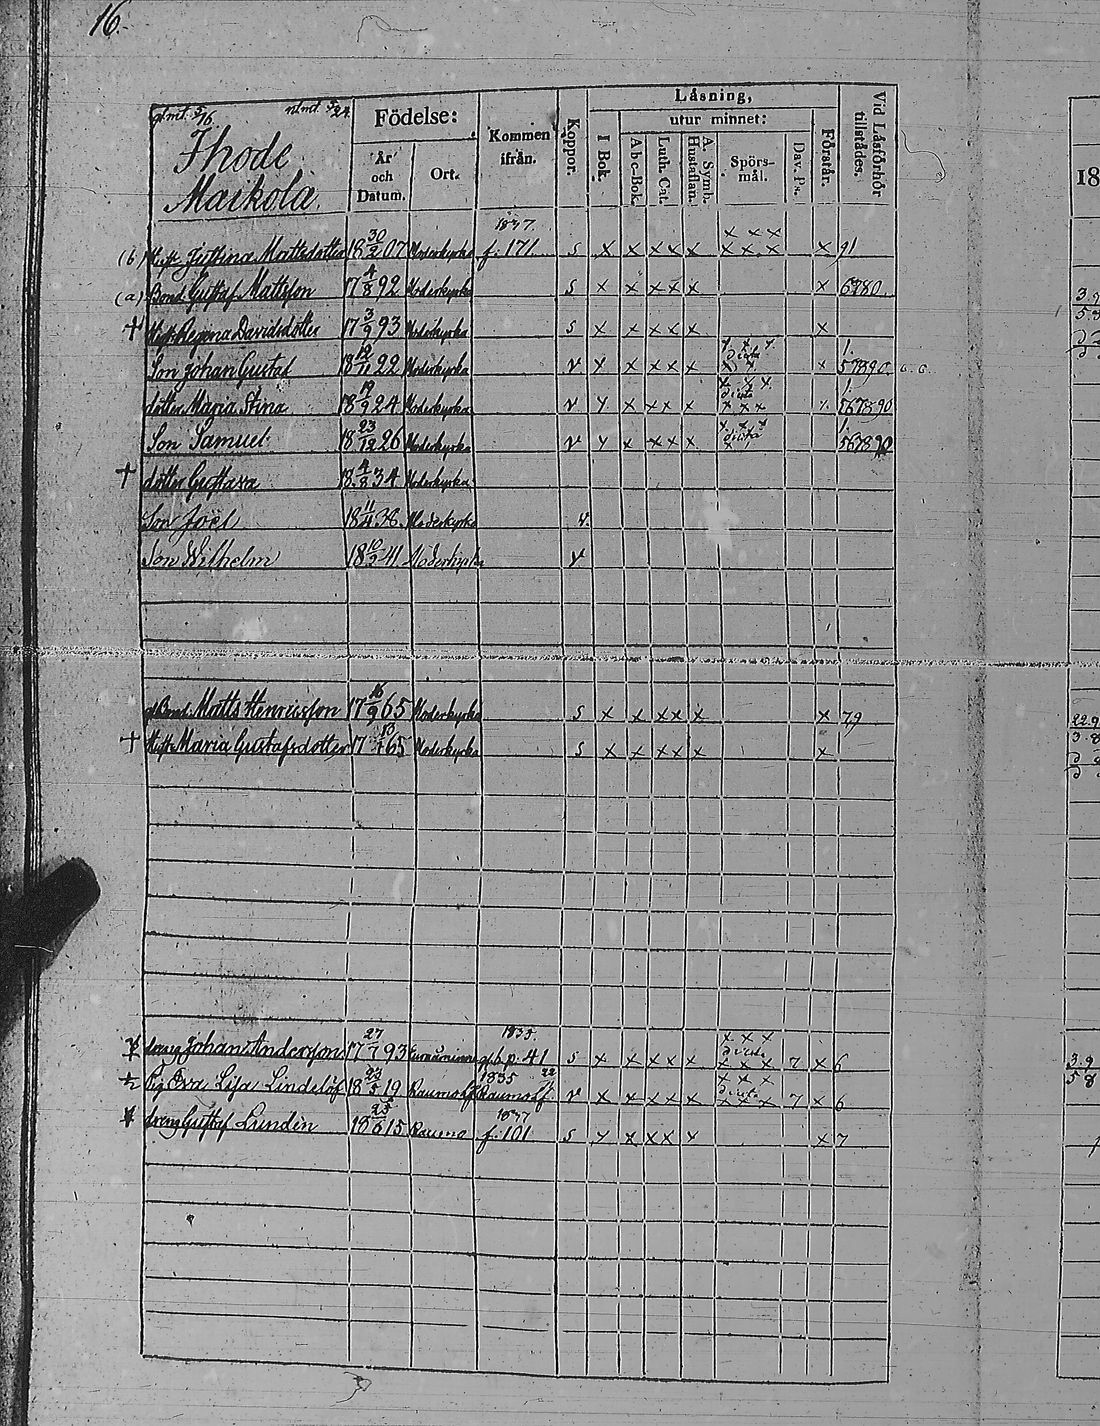 16.
glmt. 5/16 nlmt 5/24.
Ihode
Maikola.
Födelse:
År och Datum.
Ort.
Kommen ifrån.
Koppor.
Läsning,
I Bok.
utur minnet:
Abc-Bok.
Luth. Cat.
Hustaflan.
A. Symb.
Spörs-mål.
Dav. Ps.
Förstår.
Vid Läsförhör tillstädes.
18
1837.
(b) Hust. Justina Mattsdotter 18 30/2 07 Moderkyrka f. 171. s x x x x x x x x x x x x 91
(a) Bond. Gustaf Mattsson 17 4/8 92 Moderkyrka s x x x x x x 6980.
† Hust. Regina Davidsdotter 17 3/9 93 Moderkyrka s x x x x x x
Son Johan Gustaf 22 Moderkyrka v x x x x x x 57890.
dotter Maria Stina 18 19/9 24 Moderkyrka v x x x x x x 567890
Son Samuel 18 23/12 26 Moderkyrka v x x x x x 567890
† dotter Gustava 18 4/8 34 Moderkyrka
Son Joël 18 11/4 38. Moderkyrka v.
Son Wilhelm 18 10/2 41 Moderkyrka v
gl Bond. Matts Henricsson 17 16/9 65 Moderkyrka s x x x x x x 79
† Hust. Maria Gustafsdotter 17 65 Moderkyrka s x x x x x x
dreng Johan Andersson 17 27/7 93 1835. p. 41 s x x x x x x x x x x x 7 x 6
Pig Eva Lisa Lindelöf 18 23/5 19 Raumo lf 1835 Raumo lf v x x x x x x x x x x x 7 x 6
dreng Gustaf Lundén 18 25/6 15 Raumo 1837 f. 101 s x x x x x x 7